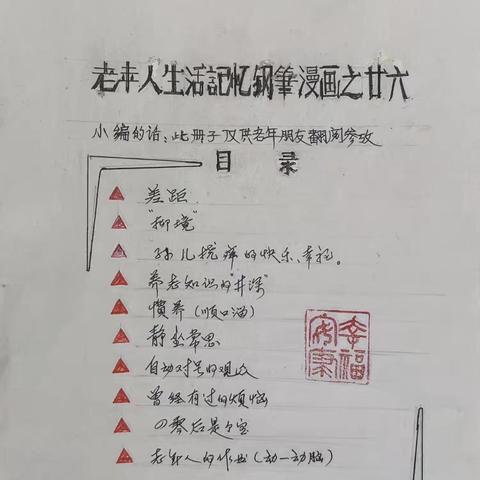 老年人生活記忆钢筆漫画之廿六
小编的话:此册子仅供老年朋友翻阅参攷
目录
差距
"柳境"
孙儿挠痒的快乐、幸福。
养老知识的"井深"
惯养(顺口溜)
静坐常思
自动对号的观众
曾经有过的烦恼
老年人的作业(动一动脑)
幸福
安康